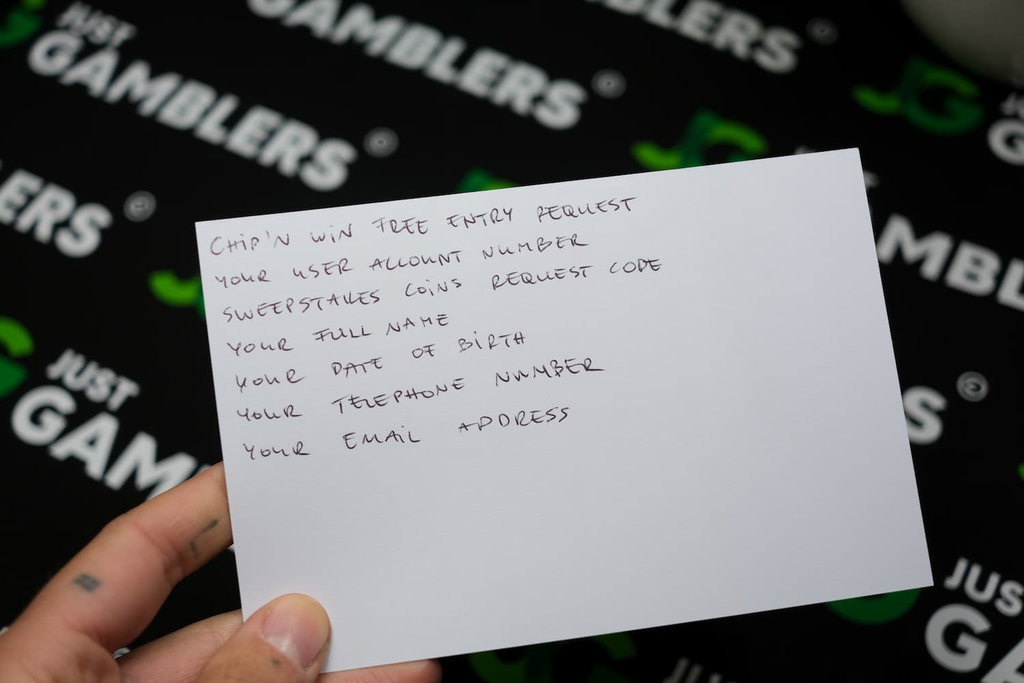 JUST
GAMBLERS
GAMBLERS
BLERS
LERS
JUST
GAM
MBL
S
JUS
G
CHIP'N WIN FREE ENTRY REQUEST
YOUR USER ACCOUNT NUMBER
SWEEPSTAKES COINS REQUEST CODE
YOUR FULL NAME
YOUR DATE OF BIRTH
YOUR TELEPHONE NUMBER
YOUR EMAIL ADDRESS